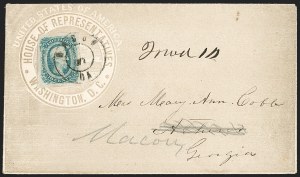 UNITED STATES OF AMERICA
HOUSE OF REPRESENTATIVES
WASHINGTON, D. C.
Mrs Mary Ann Cobb
Athens
Macon
Georgia